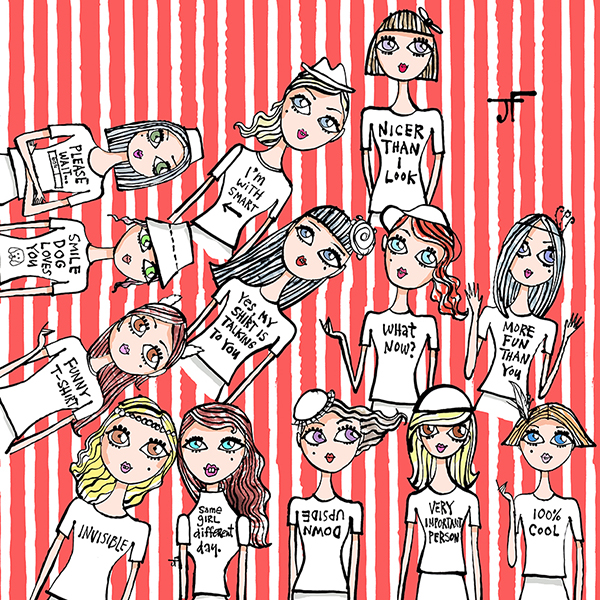 NICER
THAN
I
LOOK
JF
PLEASE
WAIT...
I'M
WITH
SMART
SMILE
DOG
LOVES
YOU
YES, MY
SHIRT IS
TALKING
TO YOU
WHAT
NOW?
MORE
FUN THAN
YOU
FUNNY
T-SHIRT
INVISIBLE
Same
GIRL
different
day.
JF
UPSIDE
DOWN
VERY
IMPORTANT
PERSON
100%
COOL